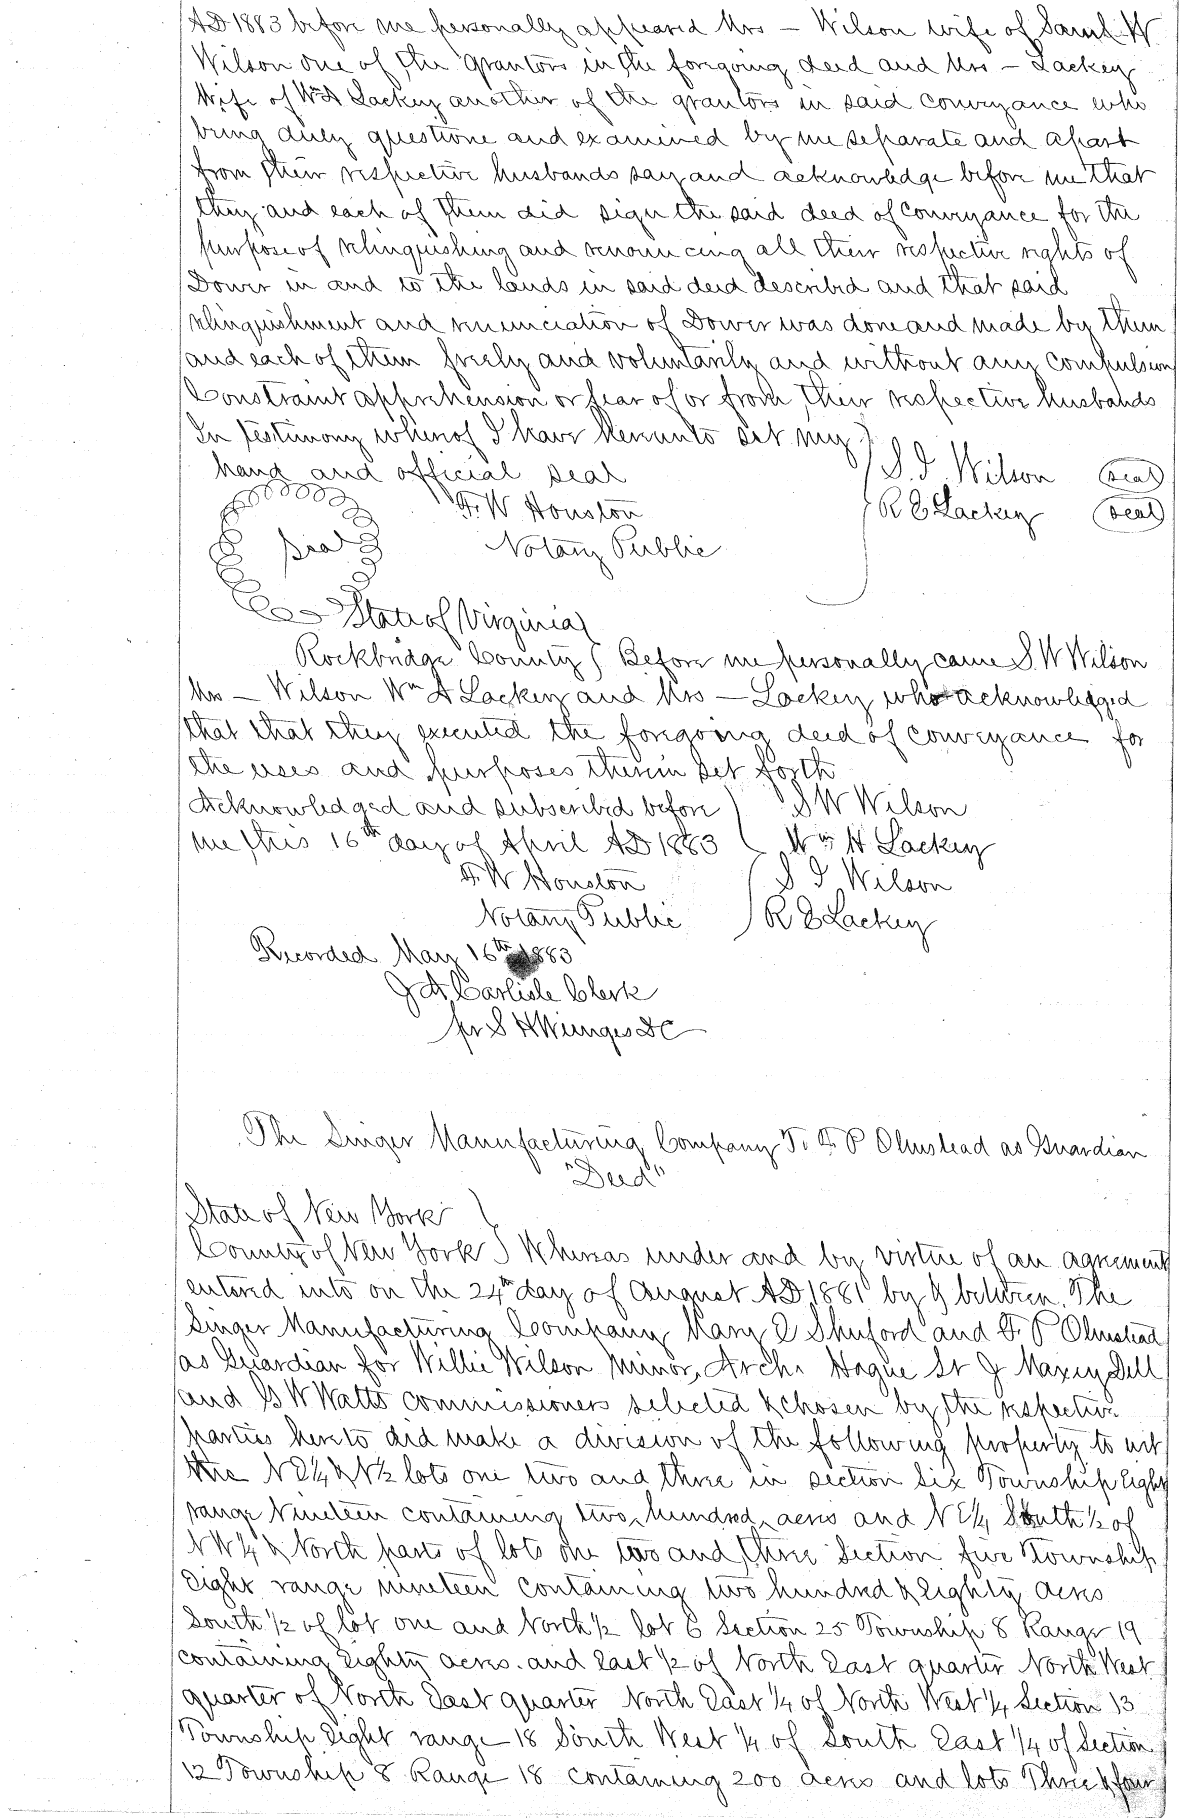 AD 1883 before me personally appeared Mrs — Wilson wife of Saml W
Wilson one of the grantors in the foregoing deed and Mrs — Lackey
Wife of Wm A Lackey another of the grantors in said conveyance who
being duly questione and examined by me separate and apart
from their respective husbands say and acknowledge before me that
they and each of them did sign the said deed of conveyance for the
purpose of relinquishing and renouncing all their respective rights of
Dower in and to the lands in said deed described and that said
relinquishment and renunciation of Dower was done and made by them
and each of them freely and voluntarily and without any compulsion
Constraint apprehension or fear of or from their respective husbands
In testimony whereof I have hereunto set my
hand and official seal
S. I. Wilson (seal)
F. W Houston
R E Lackey (seal)
seal
Notary Public
State of Virginia
Rockbridge County Before me personally came S. W Wilson
Mrs — Wilson Wm A Lackey and Mrs — Lackey who acknowledged
that that they executed the foregoing deed of conveyance for
the uses and purposes therein set forth
Acknowledged and subscribed before S W Wilson
me this 16th day of April AD 1883 Wm H Lackey
F. W Houston S I Wilson
Notary Public R E Lackey
Recorded May 16th 1883
J A Carlisle Clerk
pr S H DC
The Singer Manufacturing Company To F P Olmstead as Guardian
"Deed"
State of New York
County of New York Whereas under and by virtue of an agreement
entered into on the 24th day of August AD 1881 by & between The
Singer Manufacturing Company Mary E Shuford and F. P Olmstead
as Guardian for Willie Wilson Minor, Arch. Hague Sr J Maxey Dell
and G W Watts commissioners selected & chosen by the respective
parties hereto did make a division of the following property to wit
the NE¼ & N½ lots one two and three in section Six Township Eight
range Nineteen containing two hundred acres and NE¼ South ½ of
NW¼ & North parts of lots one two and three Section five Township
Eight range nineteen containing two hundred & Eighty acres
South ½ of lot one and North ½ lot 6 Section 25 Township 8 Range 19
containing Eighty acres. and East ½ of North East quarter North West
quarter of North East quarter North East ¼ of North West ¼ Section 13
Township Eight range 18 South West ¼ of South East ¼ of Section
12 Township 8 Range 18 containing 200 acres and lots Three & four